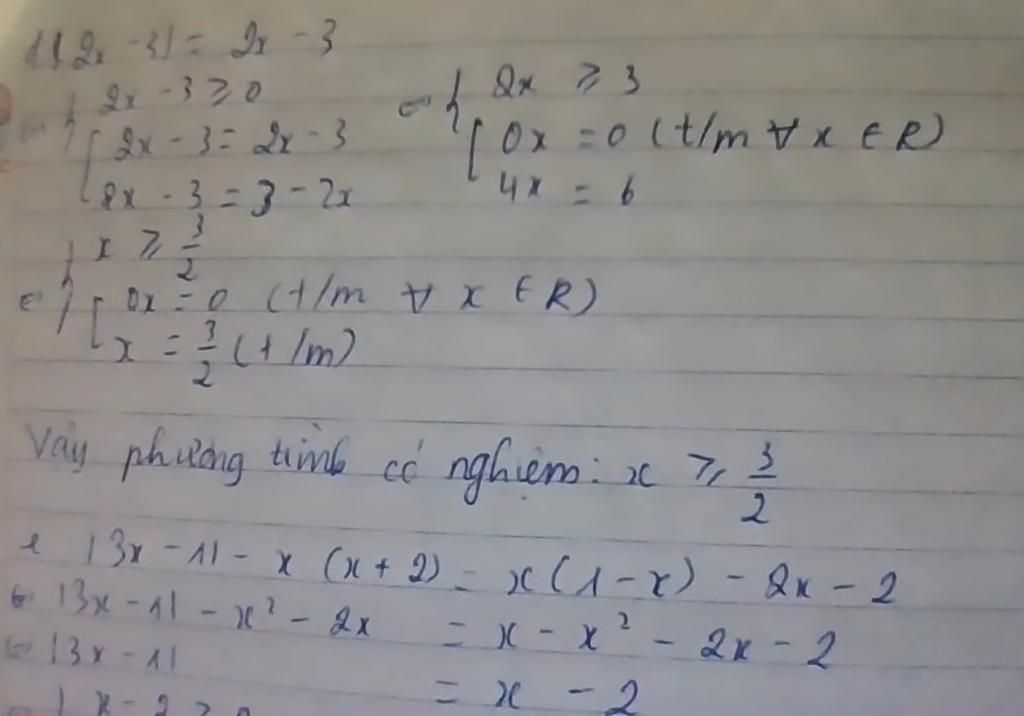 d) |2x - 3| = 2x - 3
⇔ { 2x - 3 ≥ 0 ⇔ { 2x ≥ 3
[ 2x - 3 = 2x - 3 [ 0x = 0 (t/m ∀ x ∈ R)
2x - 3 = 3 - 2x 4x = 6
{ x ≥ 3/2
⇔ [ 0x = 0 (t/m ∀ x ∈ R)
x = 3/2 (t/m)
Vậy phương trình có nghiệm: x ≥ 3/2
e |3x - 1| - x (x + 2) = x(1 - x) - 2x - 2
⇔ |3x - 1| - x² - 2x = x - x² - 2x - 2
⇔ |3x - 1| = x - 2
{ x - 2 ≥ 0